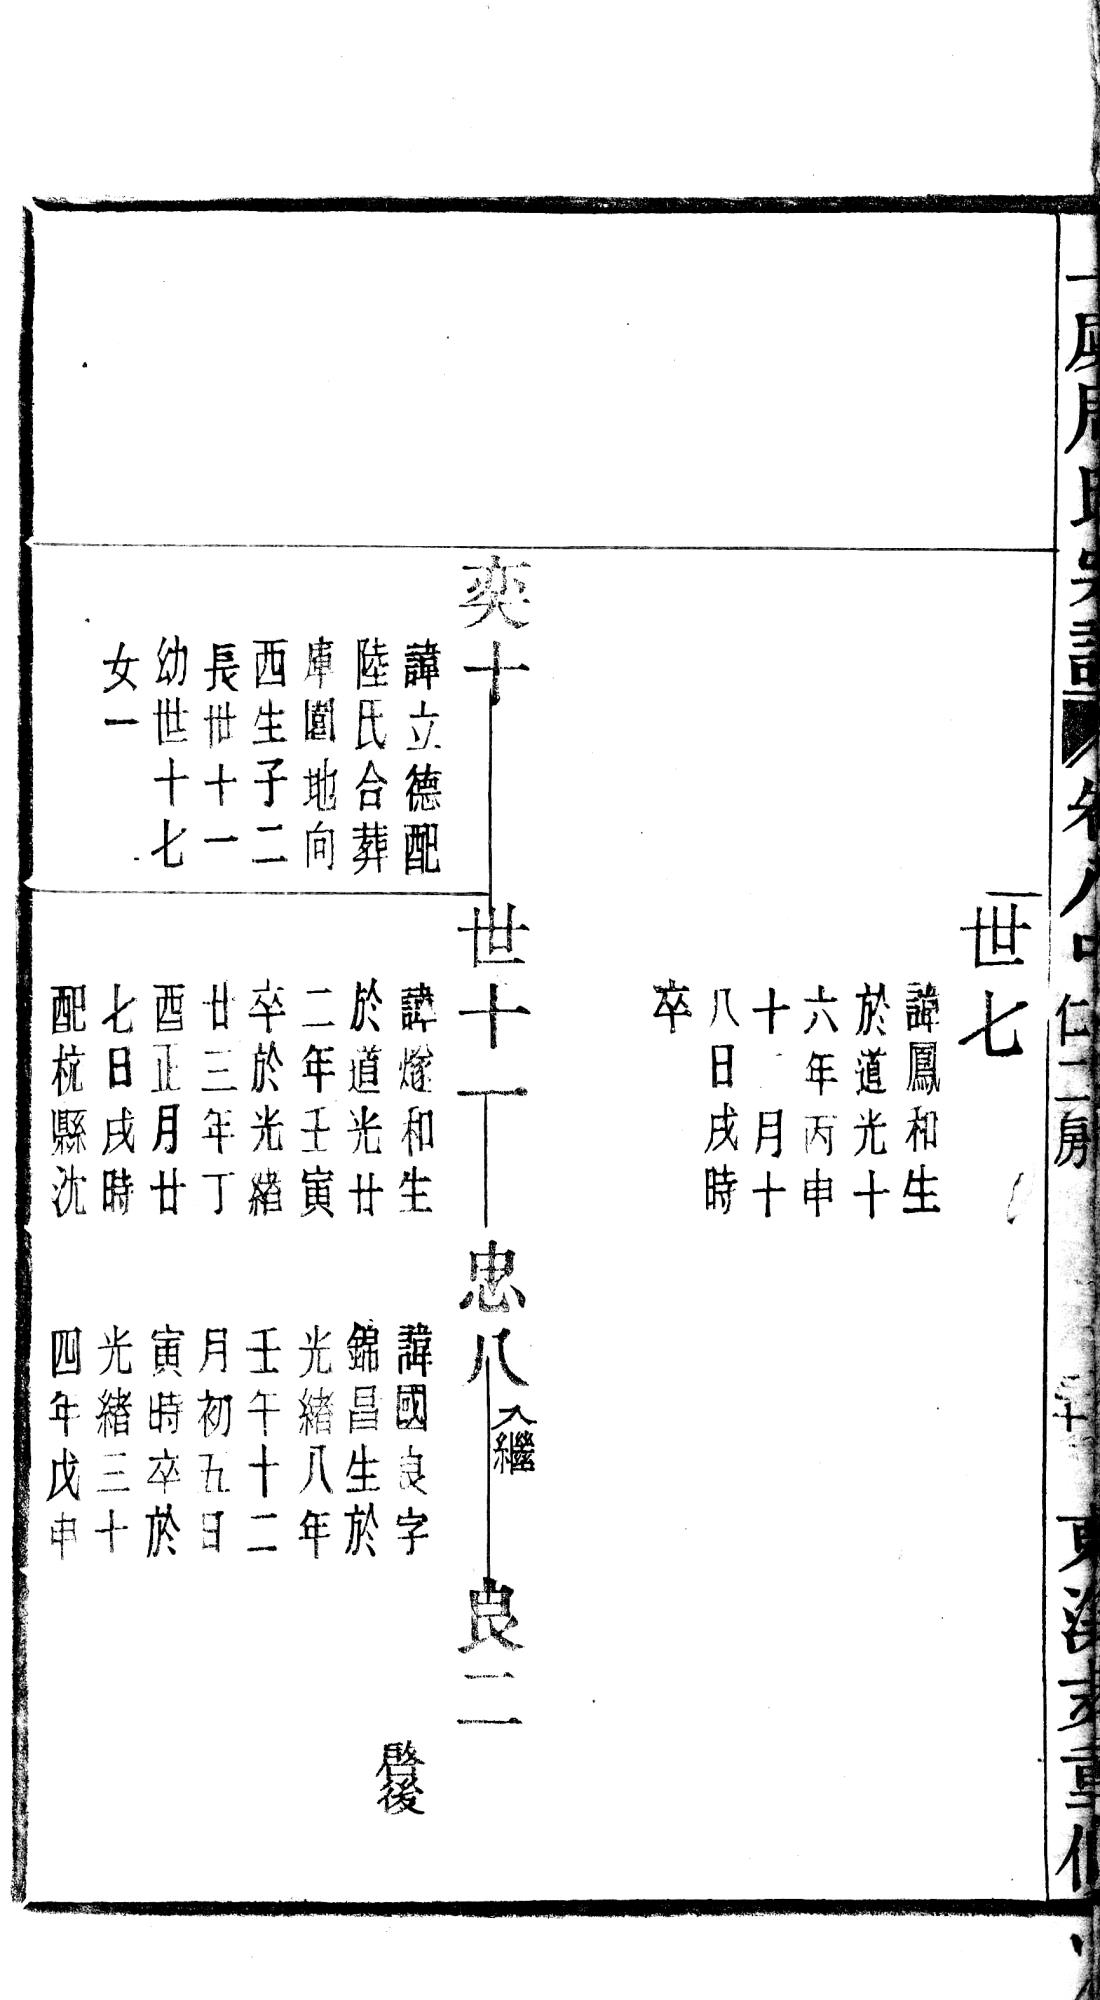 世七
諱鳳和生
於道光十
六年丙申
十月十
八日戌時
卒
奕十
諱立德配
陸氏合葬
庫園地向
西生子二
長世十一
幼世十七
女一
世十一
諱燧和生
於道光廿
二年壬寅
卒於光緒
廿三年丁
酉正月廿
七日戌時
配杭縣沈
忠八
入繼
諱國良字
錦昌生於
光緒八年
壬午十二
月初五日
寅時卒於
光緒三十
四年戊申
良二
啓後
卷八中
仁二房